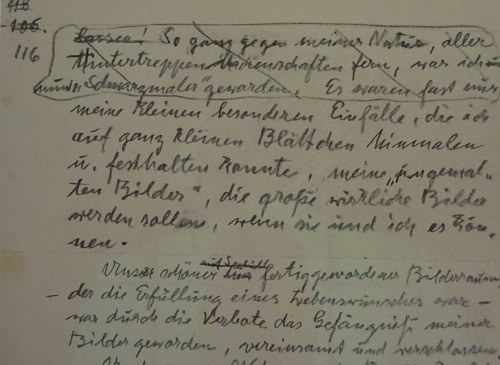 116
lassen! So ganz gegen meine Natur, aller
Hintertreppen fern, war ich
nun „Schwarzmaler" geworden. Es waren fast nur
meine kleinen besonderen Einfälle, die ich
auf ganz kleinen Blättchen hinmalen
u. festhalten konnte, meine „ungemal-
ten Bilder", die große wirkliche Bilder
werden sollen, wenn sie und ich es kön-
nen.
auf Seebüll
Unser schöner fertiggewordener Bilderraum,
- der die Erfüllung eines Lebenswunsches war -
war durch die Verbote das Gefängniß meiner
Bilder geworden, vereinsamt und verschlossen,